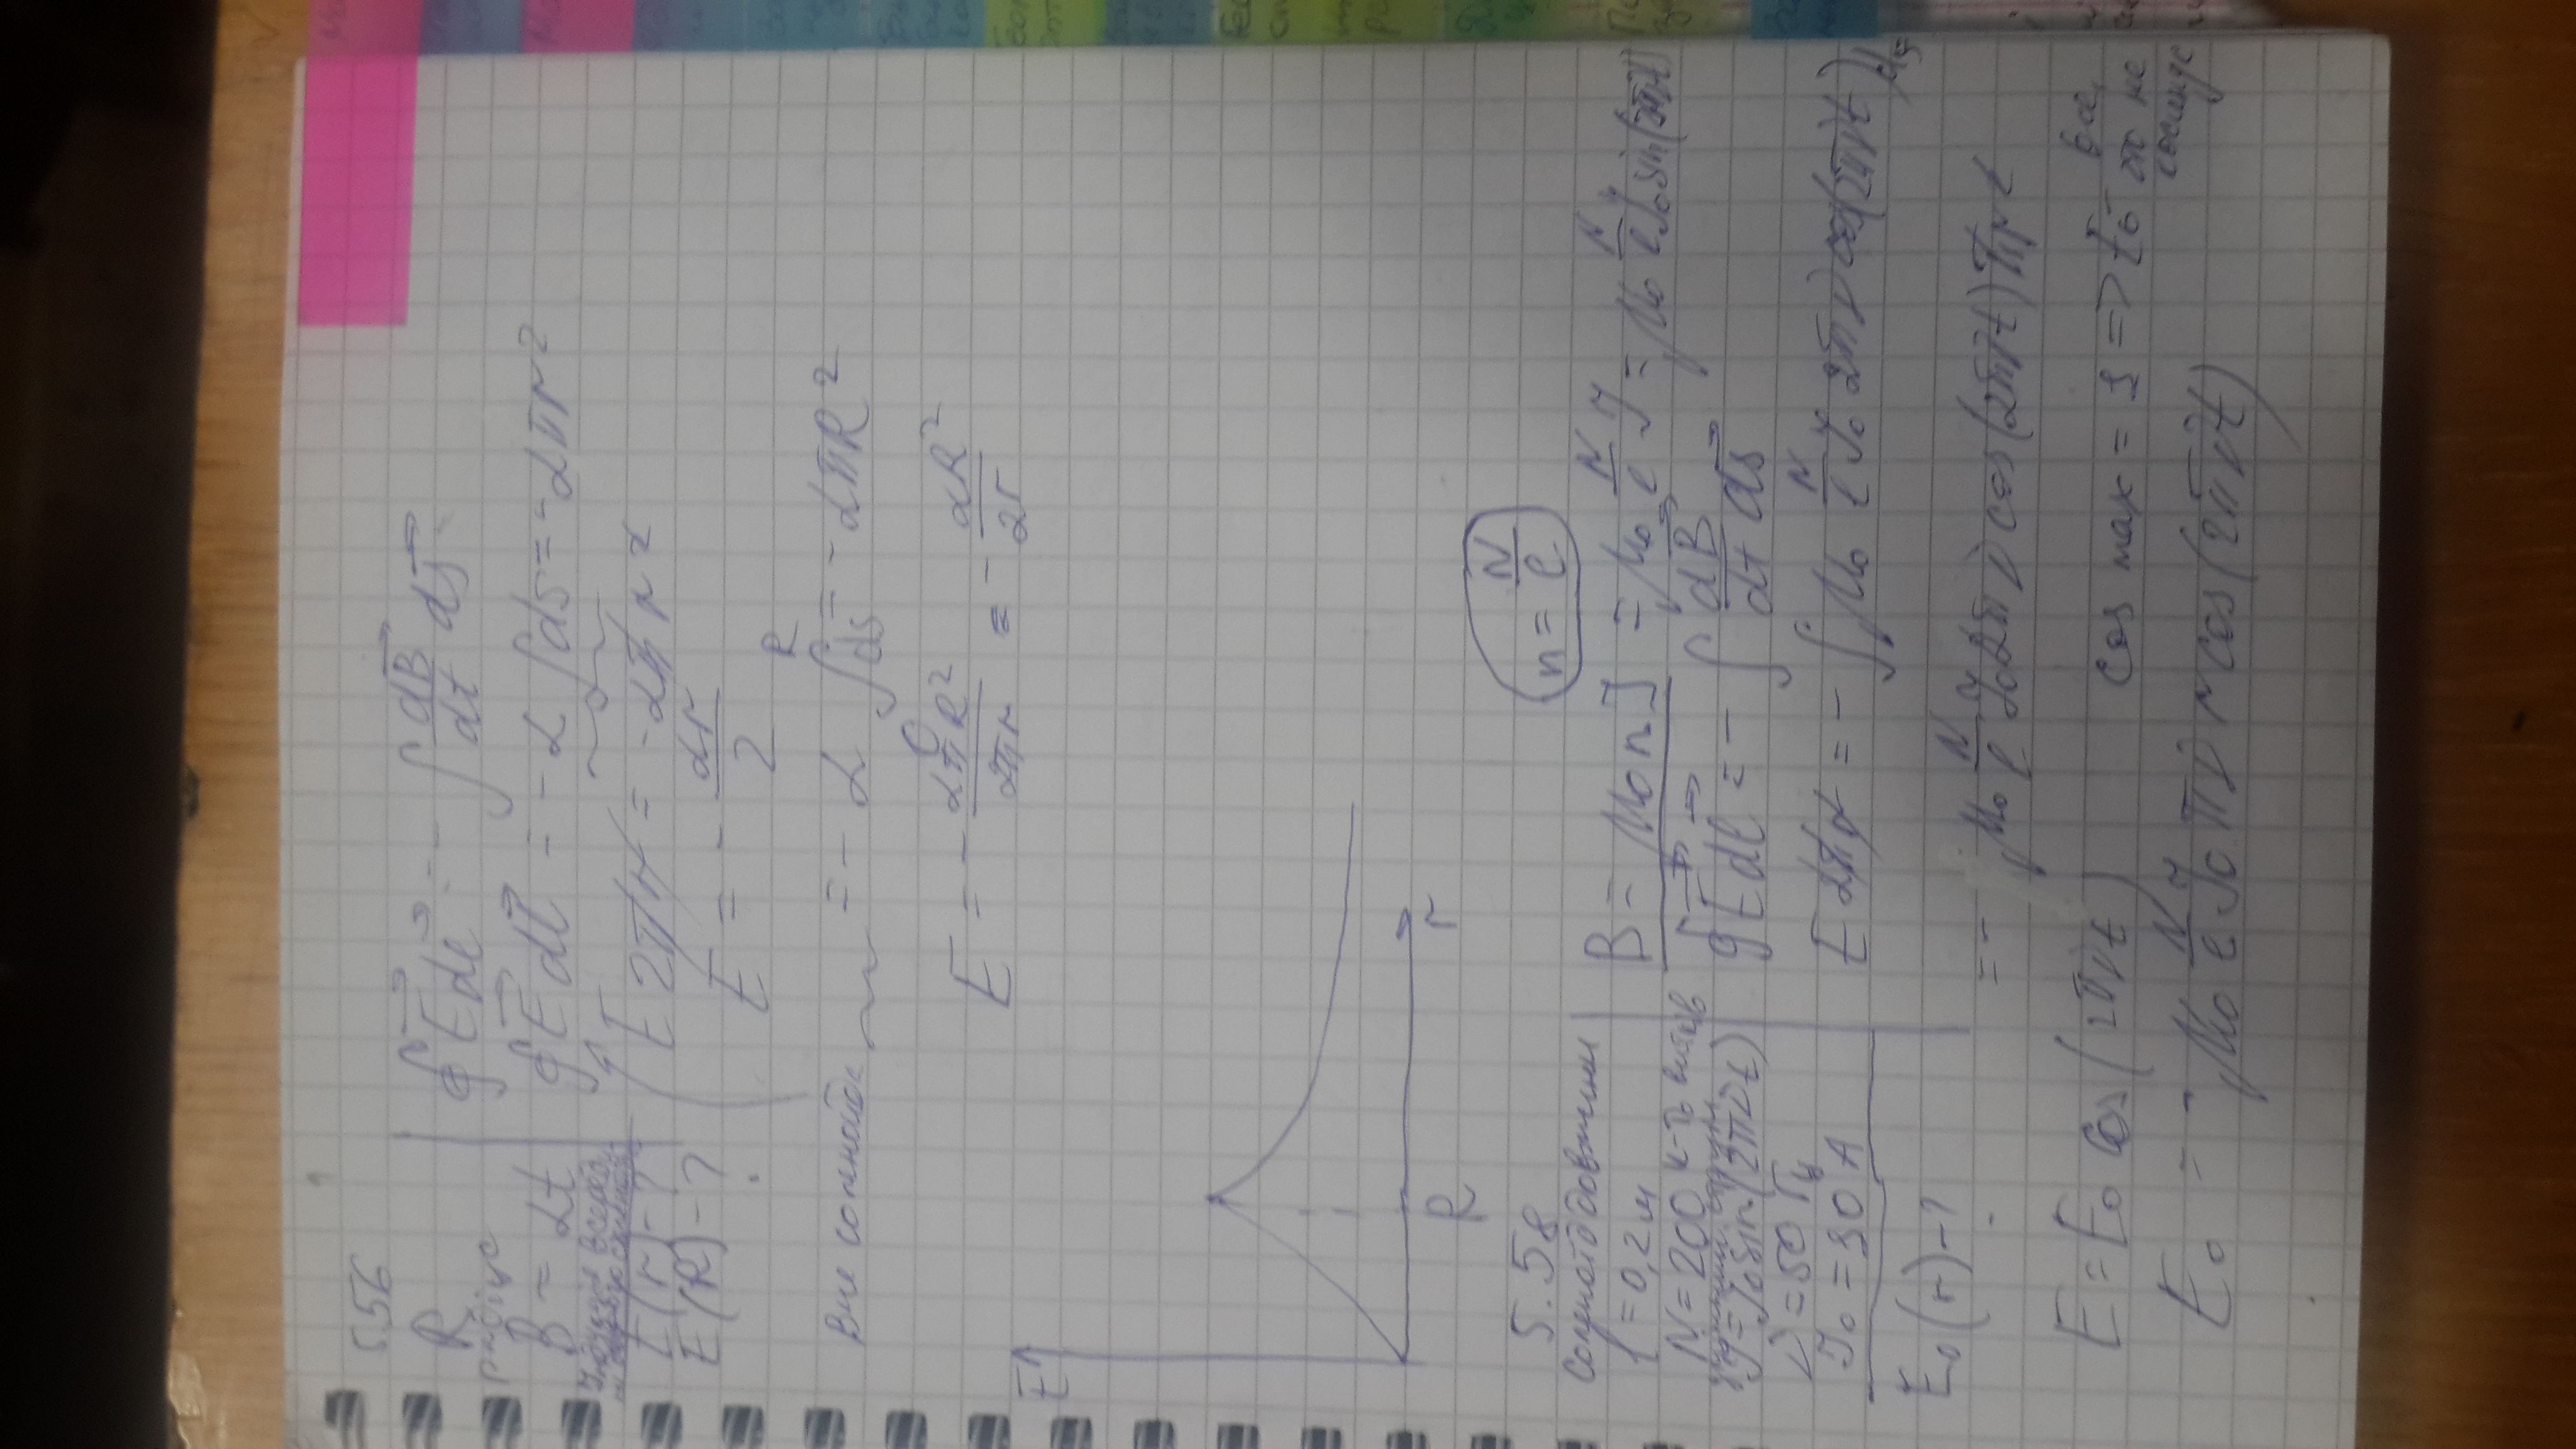 5.56
R
радіус
B = αt
E(r) - ?
E(R) - ?
∮E⃗dl⃗ = - ∫ dB⃗/dt ds⃗
∮E⃗dl⃗ = - α ∫ds = - απr²
E 2πr = - απr²
E = - αr/2
Вне соленоїда = - α ∫₀ᴿ ds = - απR²
E = - απR²/2πr = - αR²/2r
E
R
r
5.58
n = N/l
Соленоїд довжини
l = 0,2 м
N = 200 к-ть витків
J = J₀ sin(2πνt)
ν = 50 Гц
J₀ = 30 A
E₀(r) - ?
B = μ₀ n J = μ₀ N/l J = μ₀ N/l J₀ sin(2πνt)
∮E⃗dl⃗ = - ∫ dB⃗/dt ds⃗
E 2πr = - ∫ μ₀ N/l J₀ 2πν cos(2πνt) ds
= - μ₀ N/l J₀ 2πν cos(2πνt) πr²
E = E₀ cos(2πνt)
cos max = 1 => E₀ - все, что не косинус
E₀ = - μ₀ N/l J₀ πν r cos(2πνt)